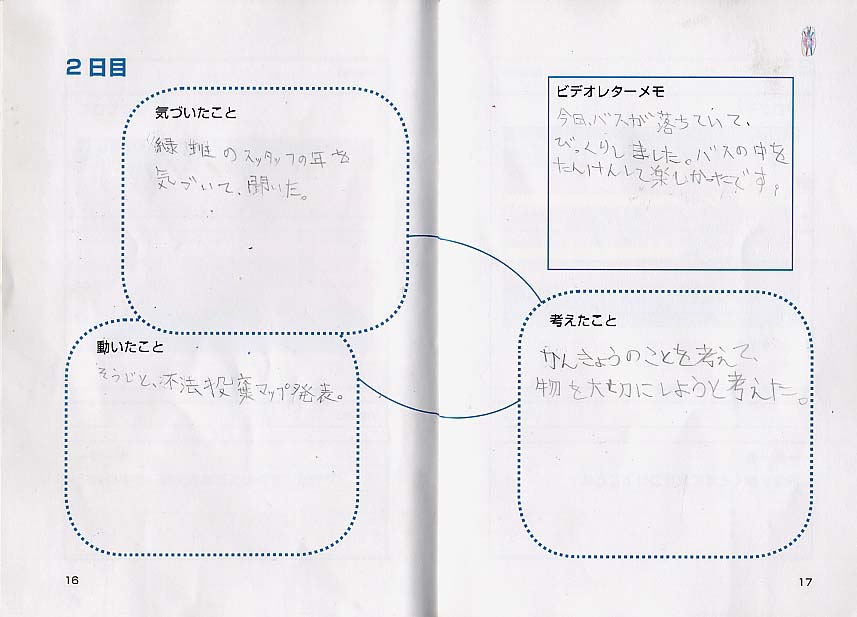 2日目
気づいたこと
緑班のスッタフの耳を
気づいて、聞いた。
動いたこと
そうじと、不法投棄マップ発表。
16
ビデオレターメモ
今日、バスが落ちていて、
びっくりしました。バスの中を
たんけんして楽しかったです。
考えたこと
かんきょうのことを考えて、
物を大切にしようと考えた。
17